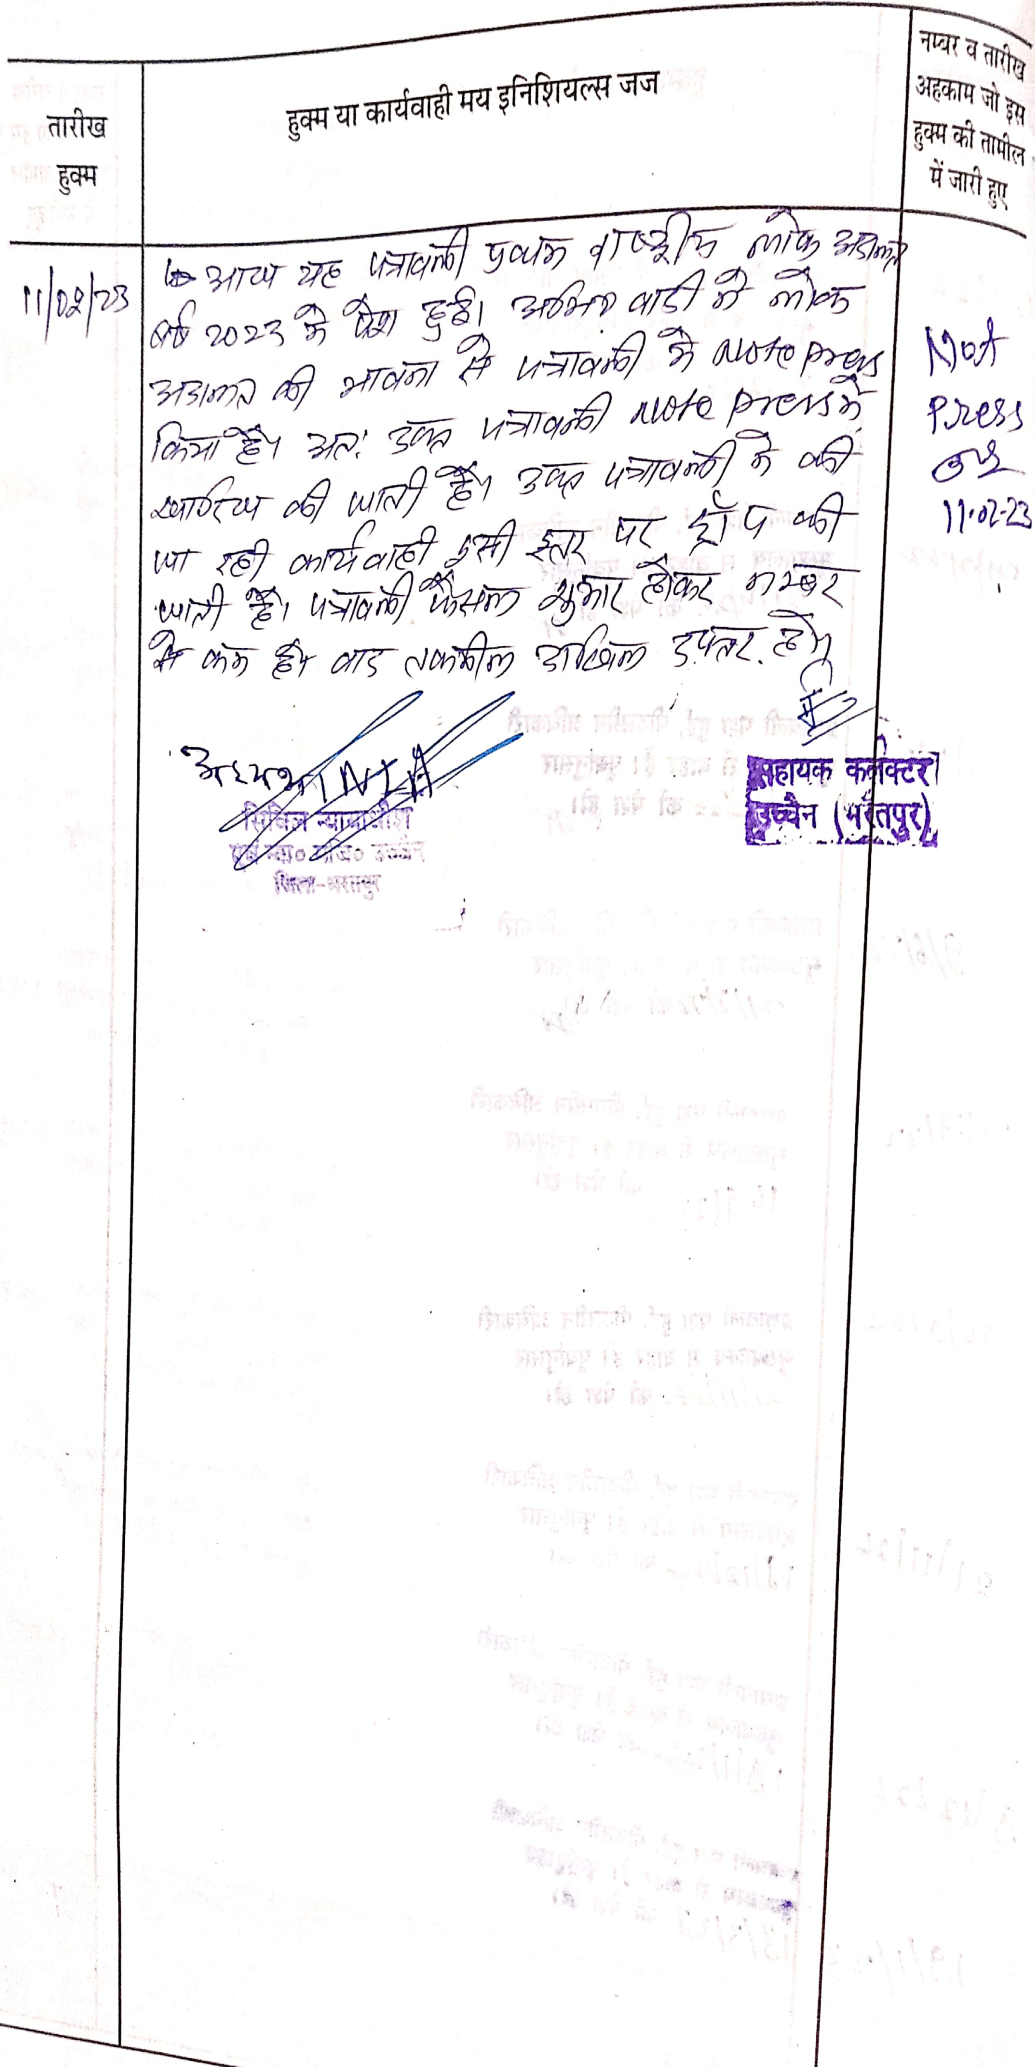 तारीख
हुक्म
हुक्म या कार्यवाही मय इनिशियल्स जज
नम्बर व तारीख
अहकाम जो इस
हुक्म की तामील
में जारी हुए
11/02/23
आज यह पत्रावली प्रथम राष्ट्रीय लोक अदालत
वर्ष 2023 मे पेश हुई। अभि० वादी ने लोक
अदालत की भावना से पत्रावली मे Note press
किया है। अतः उक्त पत्रावली Note press मे
खारिज की जाती है। उक्त पत्रावली मे की
जा रही कार्यवाही इसी स्तर पर ड्रॉप की
जाती है। पत्रावली फैसल शुमार होकर नम्बर
से कम हो। बाद तकमील दाखिल दफ्तर हो।
Not
Press
11.02.23
अध्यक्ष
सिविल न्यायाधीश
जिला-भरतपुर
सहायक कलेक्टर
उच्चैन (भरतपुर)